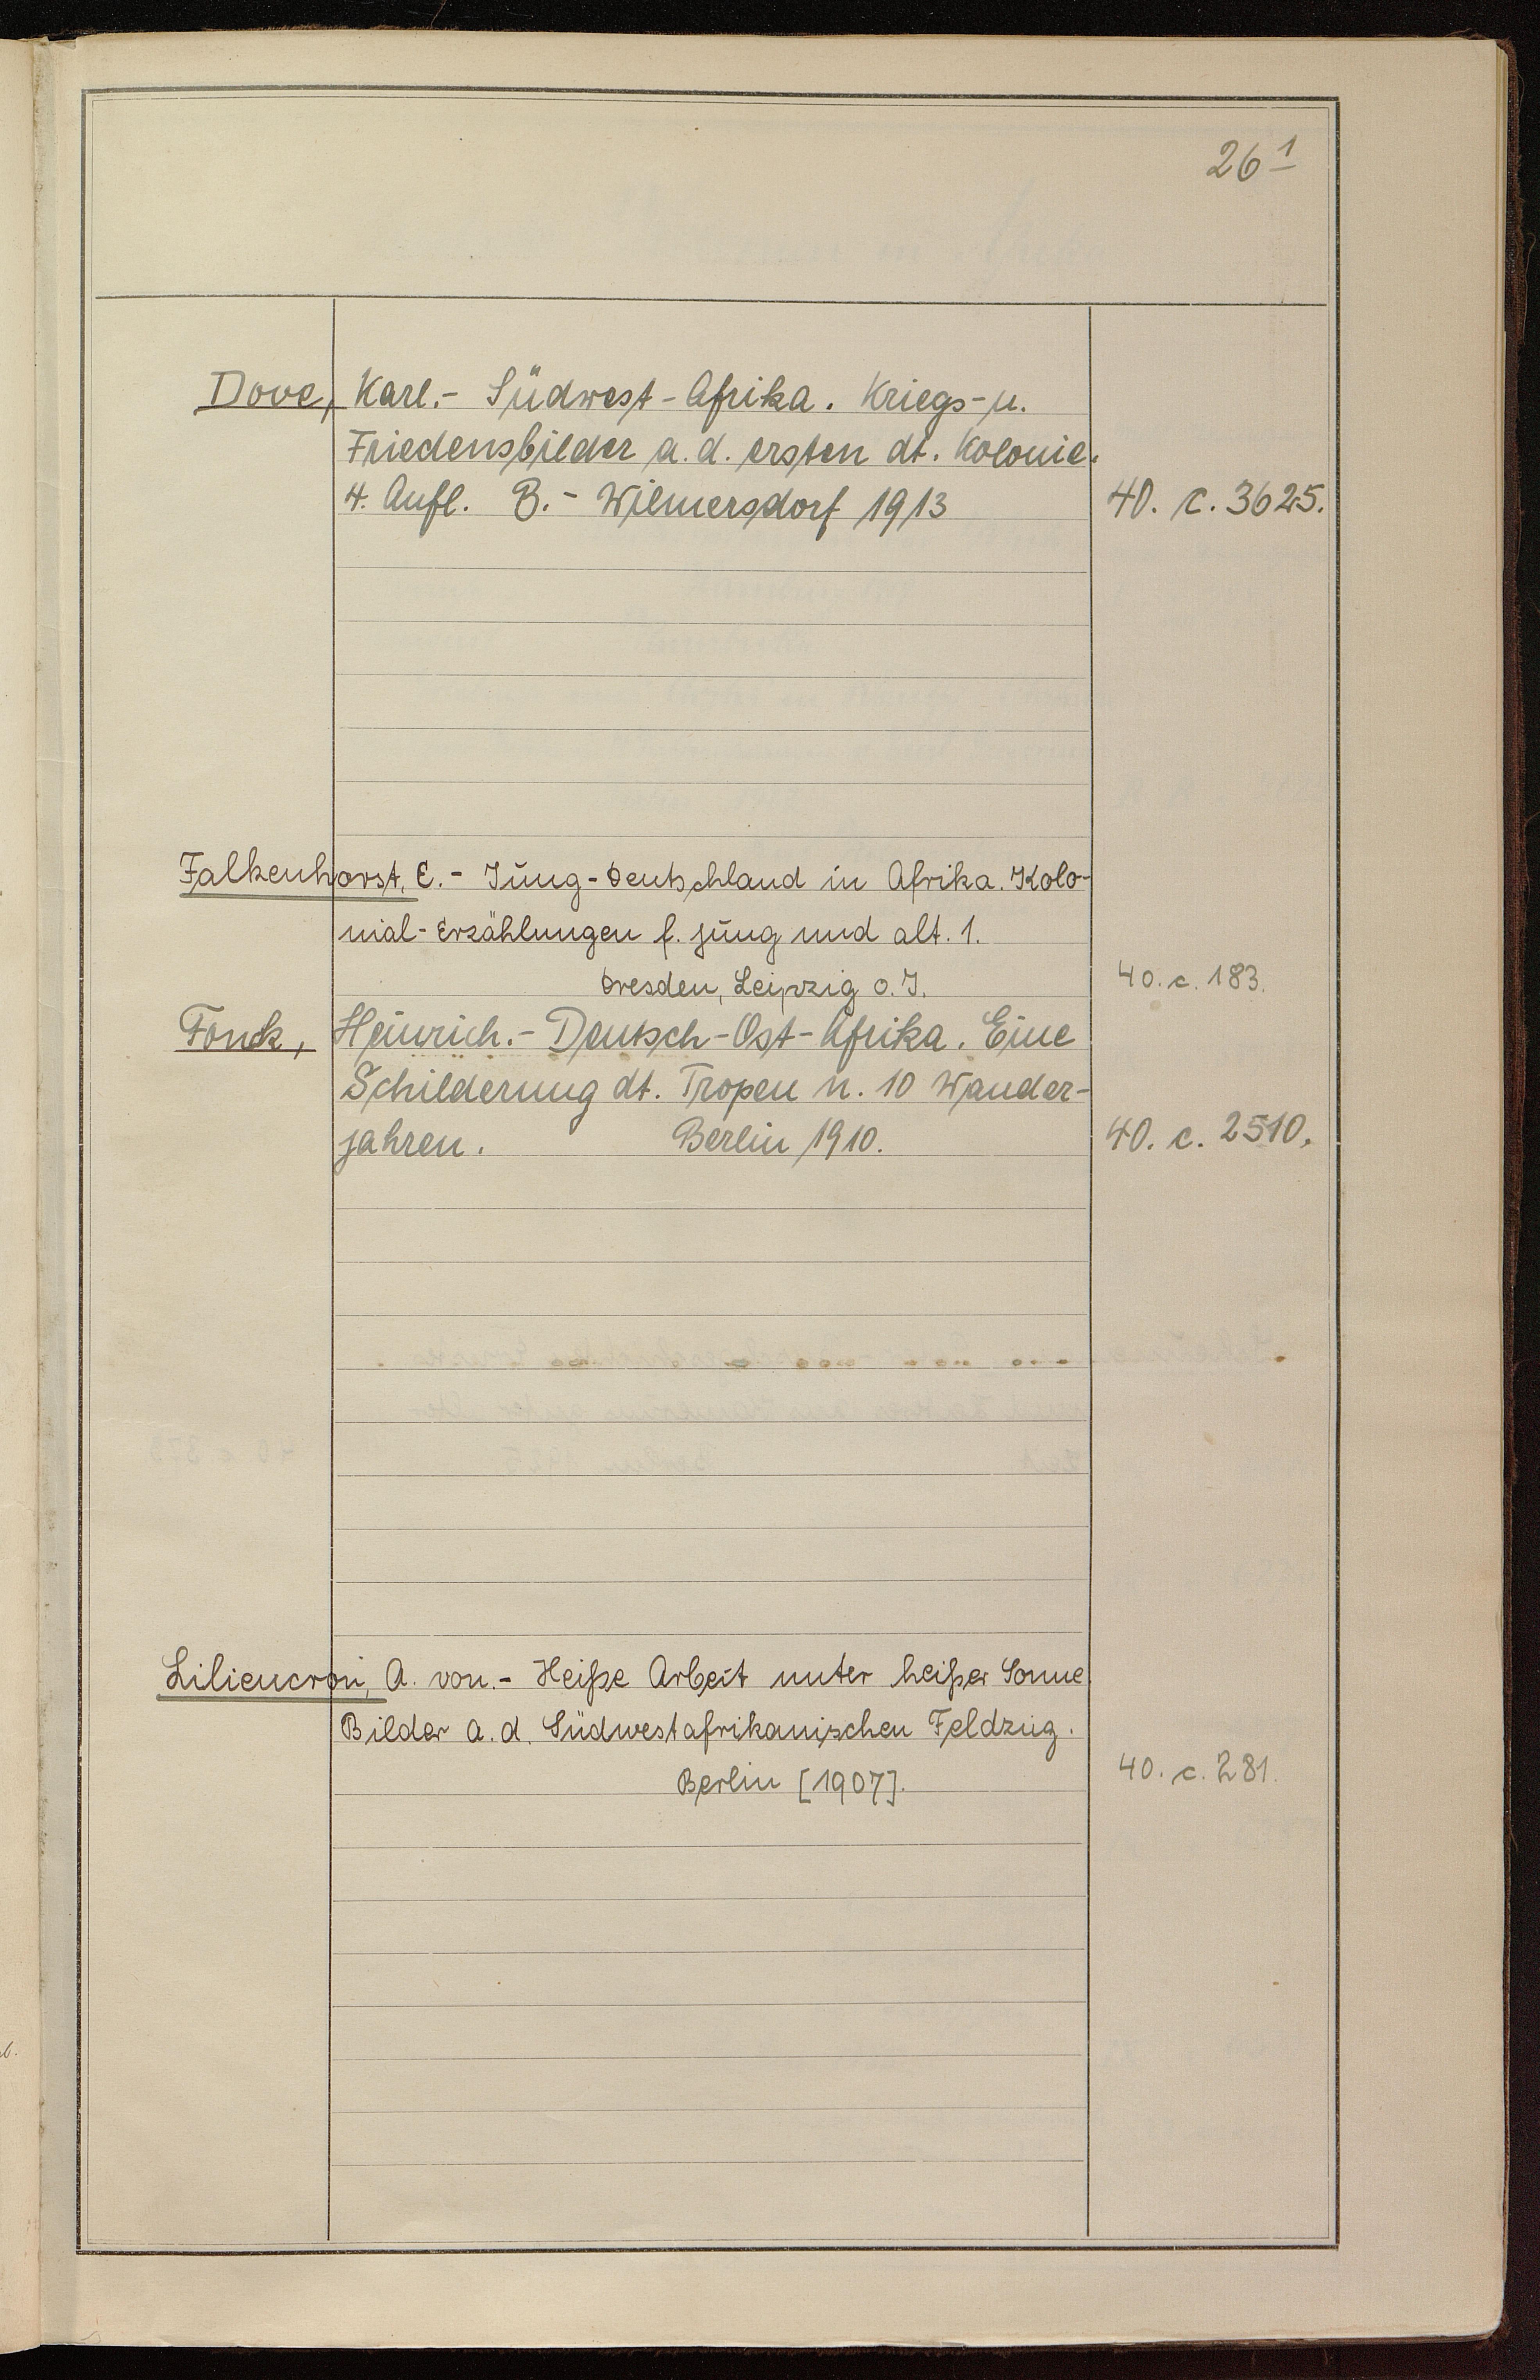 26 1
Dove, Karl.- Südwest-Afrika. Kriegs-u.
Friedensbilder a. d. ersten dt. Kolonie.
4. Aufl. B.- Wilmersdorf 1913 40. c. 3625.
Falkenhorst, C.- Jung-Deutschland in Afrika. Kolo-
nial-Erzählungen f. jung und alt. 1.
Dresden, Leipzig o. J. 40. c. 183.
Fonck, Heinrich.- Deutsch-Ost-Afrika. Eine
Schilderung dt. Tropen n. 10 Wander-
jahren. Berlin 1910. 40. c. 2510.
Liliencron, A. von.- Heiße Arbeit unter heißer Sonne
Bilder a. d. Südwestafrikanischen Feldzug.
Berlin [1907]. 40. c. 281.